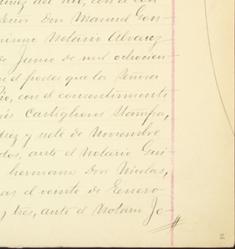 Don Manuel Gon-
Notario Alvarez
de Junio de mil ochocien
el poder que la Señora
con el consentimiento
Castiglione Stampa,
diez y siete de Noviembre
dos, ante el Notario Gui
hermano Don Nicolas,
as el veinte de Enero
y tres, ante el Notario Jo